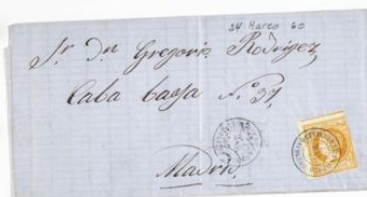 24 Marzo 60
Sr Dn Gregorio Rodrigez
Caba baja N.º 37
Madrid.